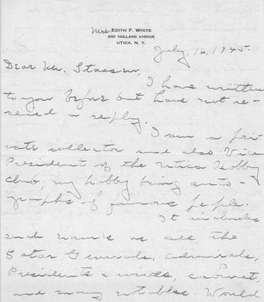 Mrs. EDITH F. WHITE
HOLLAND AVENUE
UTICA, N. Y.
July 16, 1945
Dear Mr. Stassen,
I have written
to you before but have not re-
ceived a reply.
I am a pri-
vate collector and also Vice
President of the Utica Hobby
Club, my hobby being auto-
graphs of famous people.
It includes
such names as all the
5 star Generals, Admirals,
Presidents & wives, cabinet
and many notables. Would